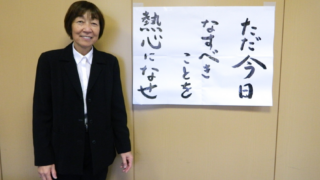 ただ今日
なすべき
ことを
熱心になせ